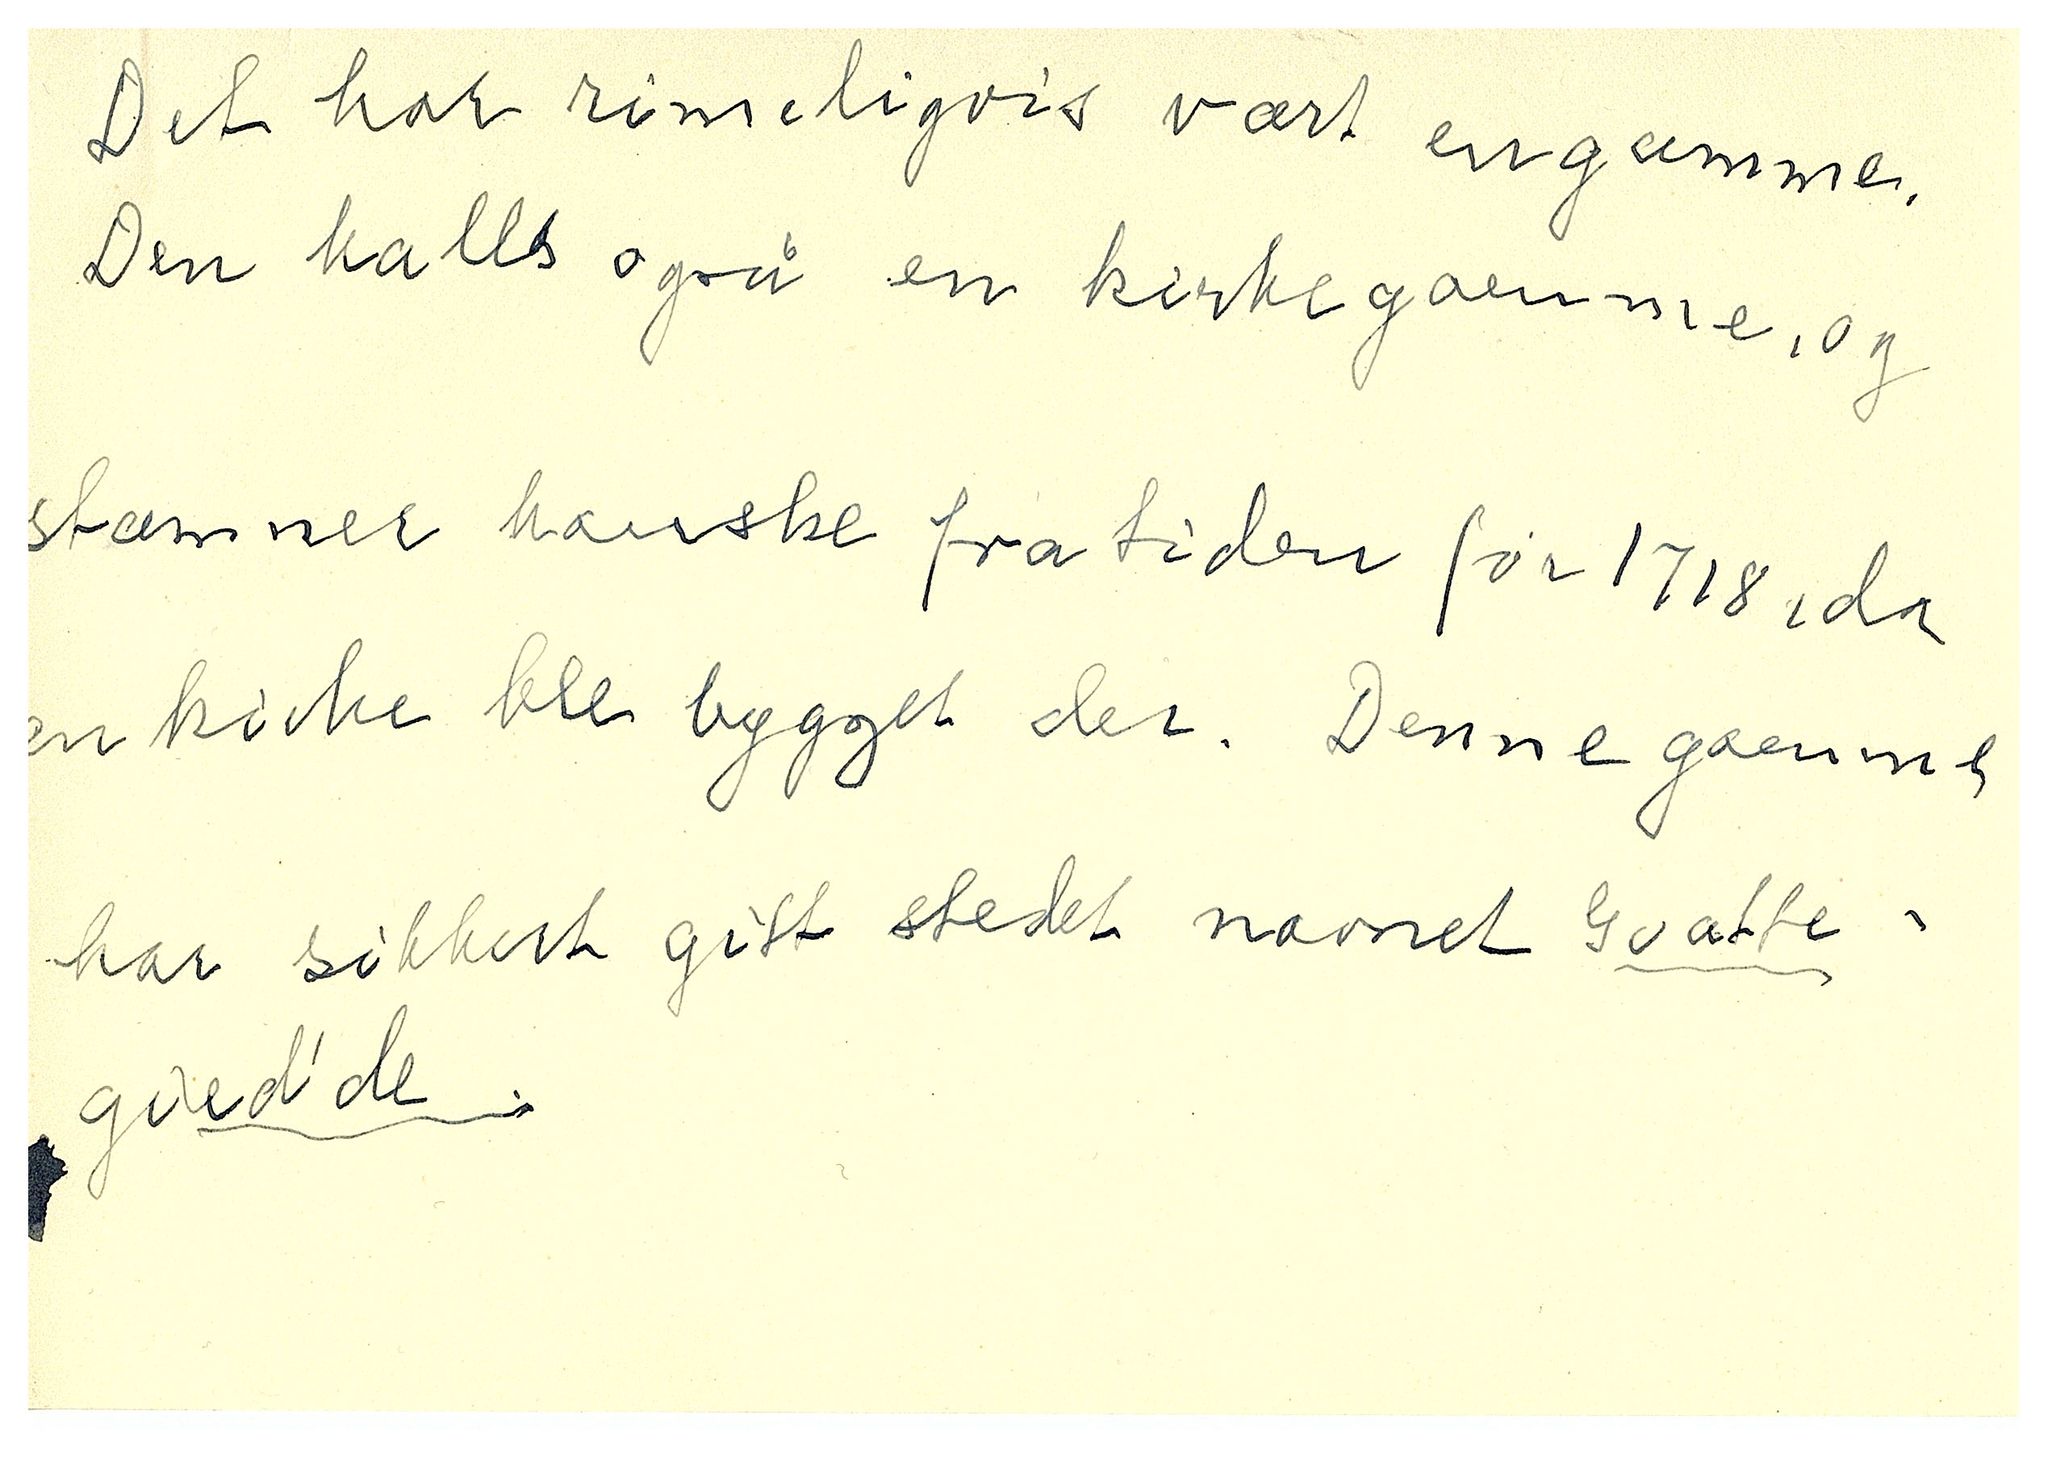 Det har rimeligvis vært en gamme.
Den kalls også en kirkegamme, og
stammer kanske fra tiden før 1718, da
en kirke ble bygget der. Denne gamme
har sikkert gitt stedet navnet Goatte-
gied'de.